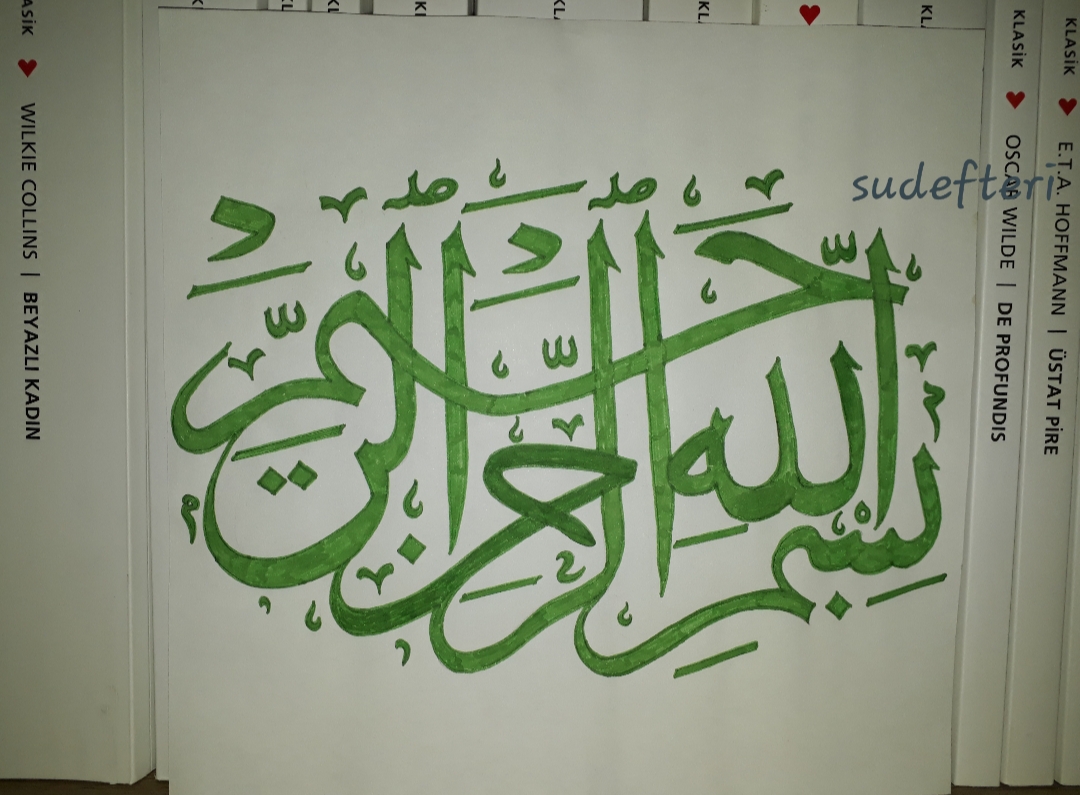 بِسْمِ اللهِ الرَّحْمٰنِ الرَّحِيمِ
sudefteri
KLASİK
WILKIE COLLINS | BEYAZLI KADIN
KLASİK
OSCAR WILDE | DE PROFUNDIS
KLASİK
E.T.A. HOFFMANN | ÜSTAT PİRE